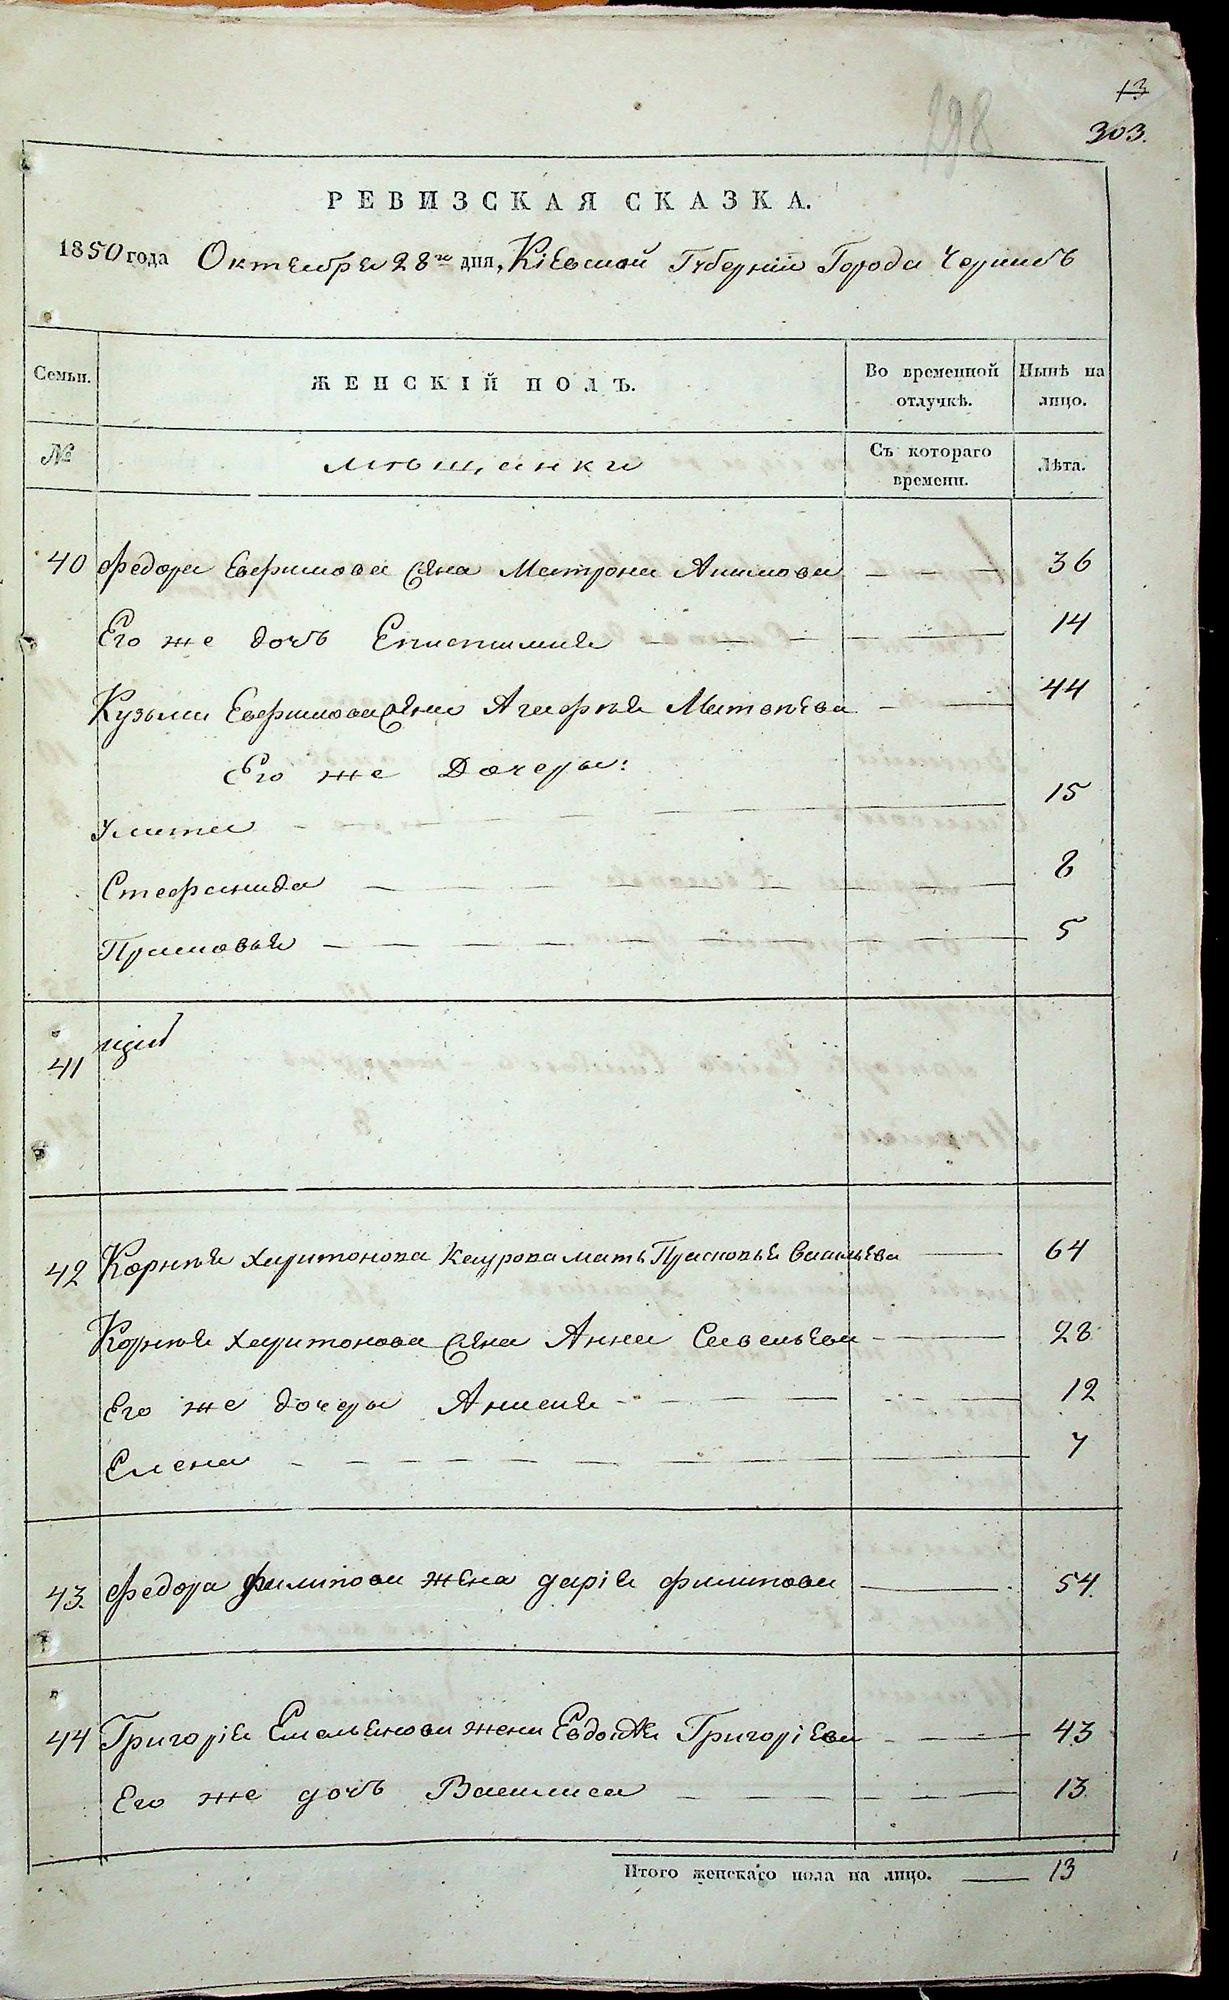 13
303.
298
РЕВИЗСКАЯ СКАЗКА.
1850 года Октября 28го дня, Кіевской Губерніи Города Черкасъ
Семьи. ЖЕНСКІЙ ПОЛЪ. Во временной отлучкѣ. Нынѣ на лицо.
№ мѣщанки Съ котораго времени. Лѣта.
40 Федора Ефимова жена Матрона Акимова — — — 36
Его же дочь Епистимия — — — 14
Кузьмы Ефимова жена Агафия Матвѣева — — 44
Его же Дочеры:
Улита — — — 15
Стефанида — — — 8
Прасковья — — — 5
41
42 Корнѣя Харитонова Каурова мать Прасковья Васильева — 64
Корнѣя Харитонова жена Анна Савельева — — 28
Его же дочеры Анисия — — — 12
Елена — — — 7
43. Федора Филипова жена дарія Филипова — 54.
44 Григорія Емельянова жена Евдокія Григоріева — — 43
Его же дочь Василиса — — — 13
Итого женскаго пола на лицо. — 13